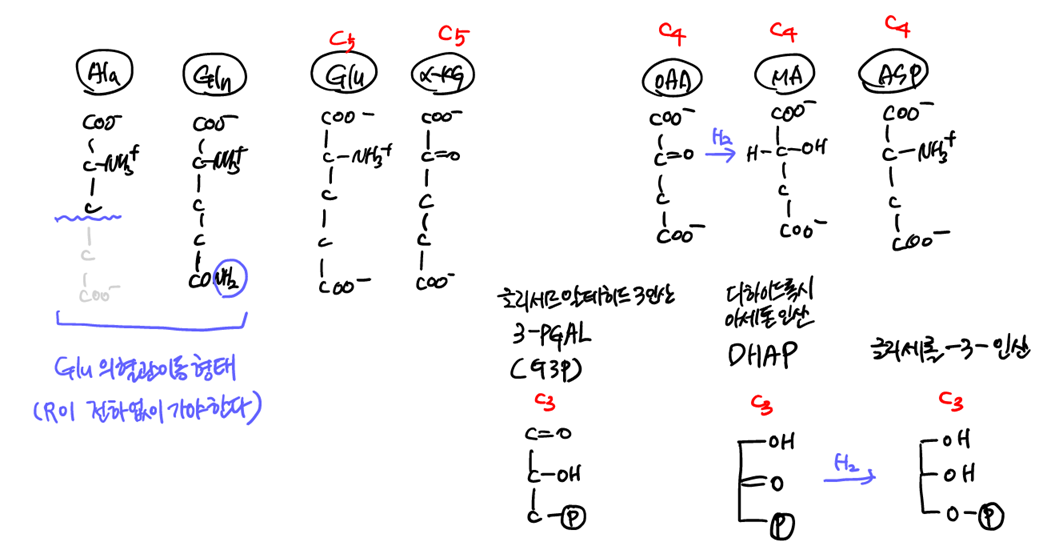 Ala
COO⁻
C-NH₃⁺
C
C
COO⁻
Gln
COO⁻
C-NH₃⁺
C
C
CONH₂
Glu의 혈관이동형태
(R이 전하없이 가야한다)
C₅
Glu
COO⁻
C-NH₃⁺
C
C
COO⁻
C5
α-KG
COO⁻
C=O
C
C
COO⁻
C4
OAA
COO⁻
C=O
C
COO⁻
H₂
C4
MA
COO⁻
H-C-OH
C
COO⁻
C4
ASP
COO⁻
C-NH₃⁺
C
COO⁻
글리세르알데히드3인산
3-PGAL
(G3P)
C3
C=O
C-OH
C-P
디하이드록시
아세톤인산
DHAP
C3
OH
=O
P
H₂
글리세롤-3-인산
C3
OH
OH
O-P